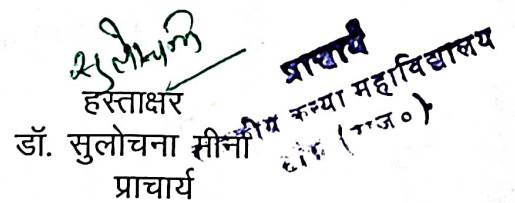 सुलोचना
हस्ताक्षर
डॉ. सुलोचना मीनी
प्राचार्य
प्राचार्य
कन्या महाविद्यालय